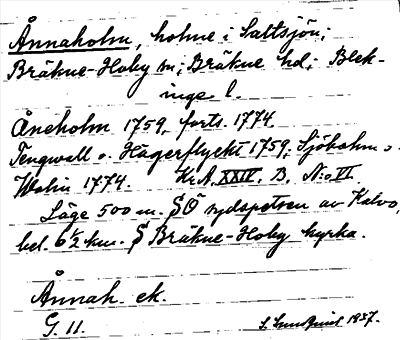 Ånnaholm, holme i Saltsjön;
Bräkne-Hoby sn; Bräkne hd; Blek-
inge l.
Åneholm 1759, forts. 1774.
Tengwall o. Hägerflyckt 1759; Sjöholm o
Walin 1774. Kr.A. XXIV. B. N:o VI
Läge 500 m. SÖ sydspetsen av Kalvö,
bel. 6½ km. S Bräkne-Hoby kyrka.
Ånnah. ek.
G. 11. S. Lundquist 1937.